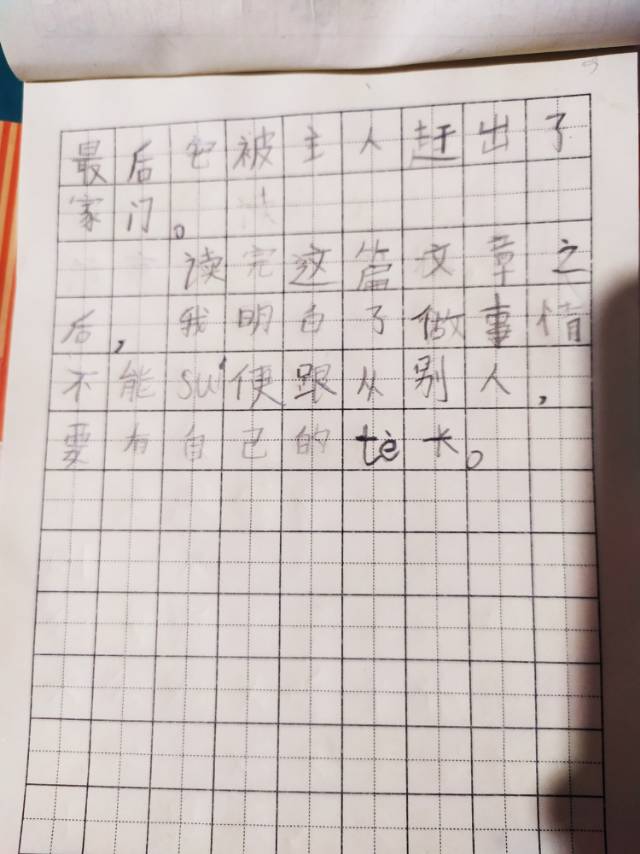 最后它被主人赶出了
家门。
读完这篇文章之
后，我明白了做事情
不能suí便跟从别人，
要有自己的tè长。